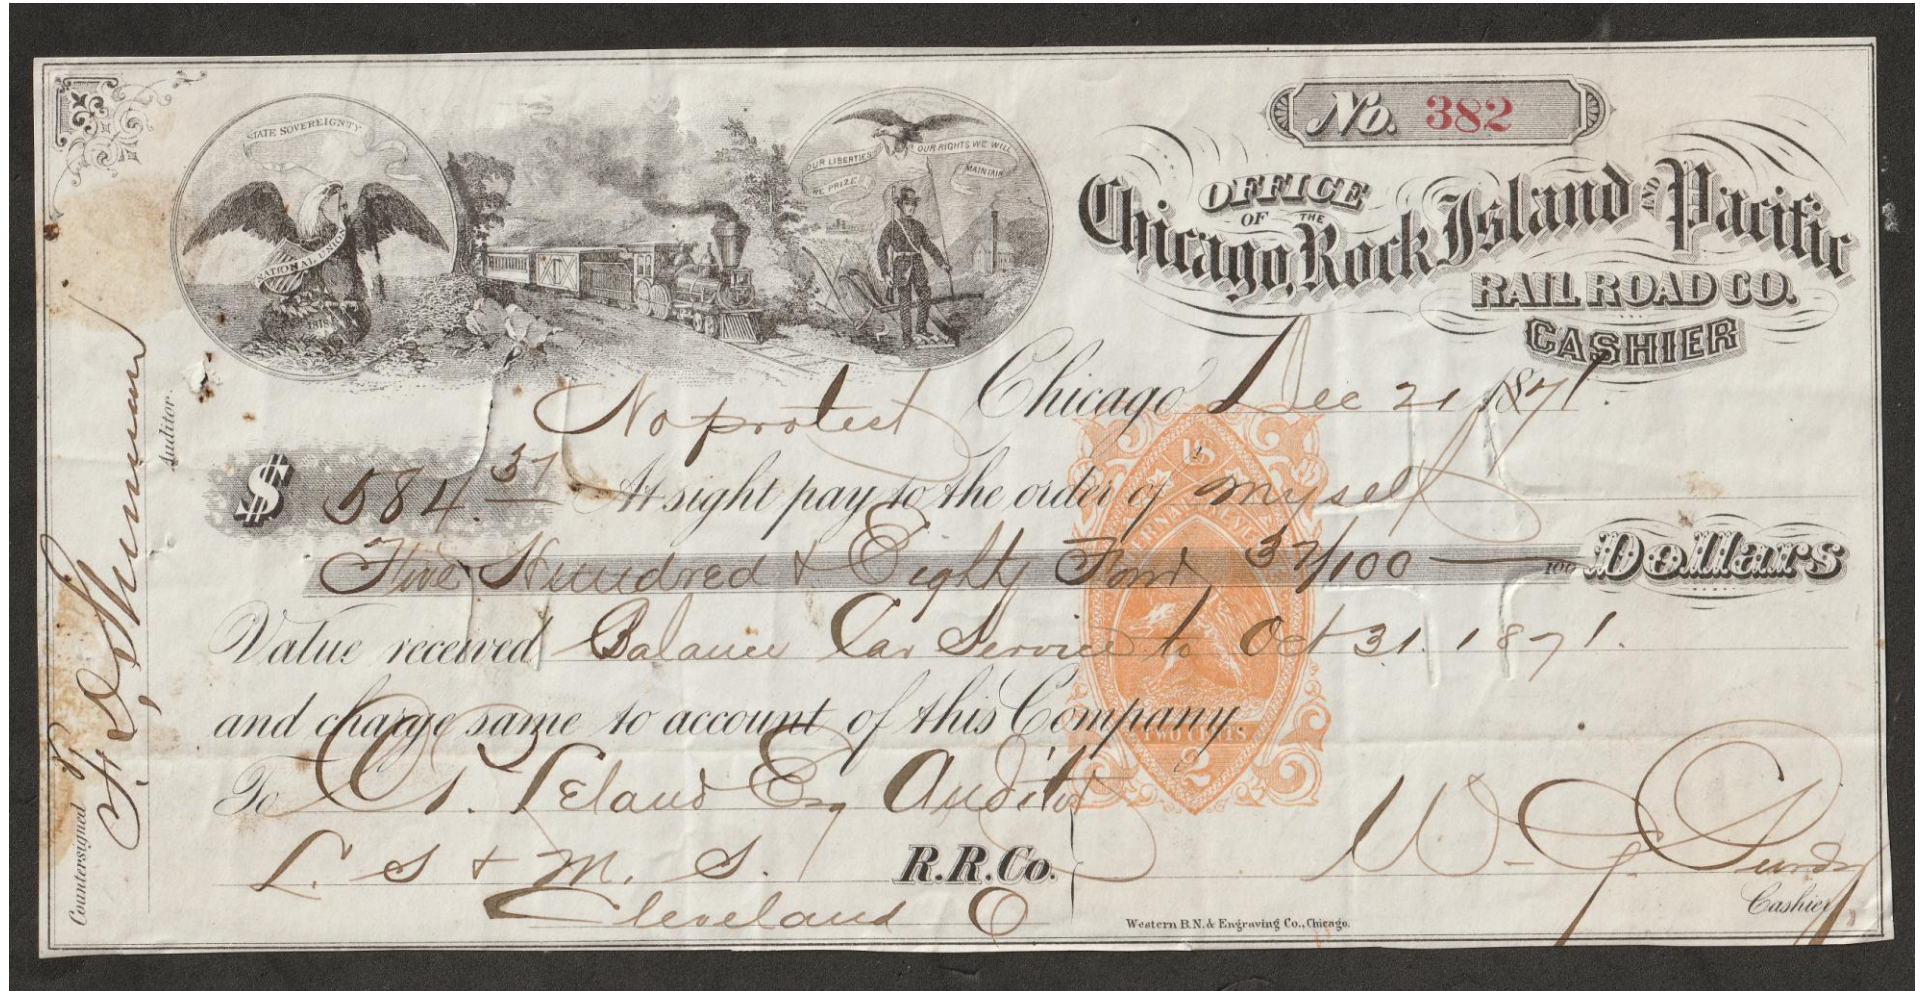 STATE SOVEREIGNTY
NATIONAL UNION
1818
OUR LIBERTIES WE PRIZE
OUR RIGHTS WE WILL MAINTAIN
No. 382
OFFICE
OF THE
Chicago, Rock Island AND Pacific
RAIL ROAD CO.
CASHIER
No protest
Chicago Dec 21 1871.
$ 584.37 At sight pay to the order of myself
Five Hundred & Eighty Four 37/100 100 Dollars
Value received Balance Car Service to Oct 31. 1871.
and charge same to account of this Company
To Leland Esq Auditor
L. S & M. S. R.R.Co.
Cleveland O
W. G. Purdy
Cashier
Western B.N. & Engraving Co., Chicago.
Countersigned
Auditor
INTERNAL REVENUE
TWO CENTS
2